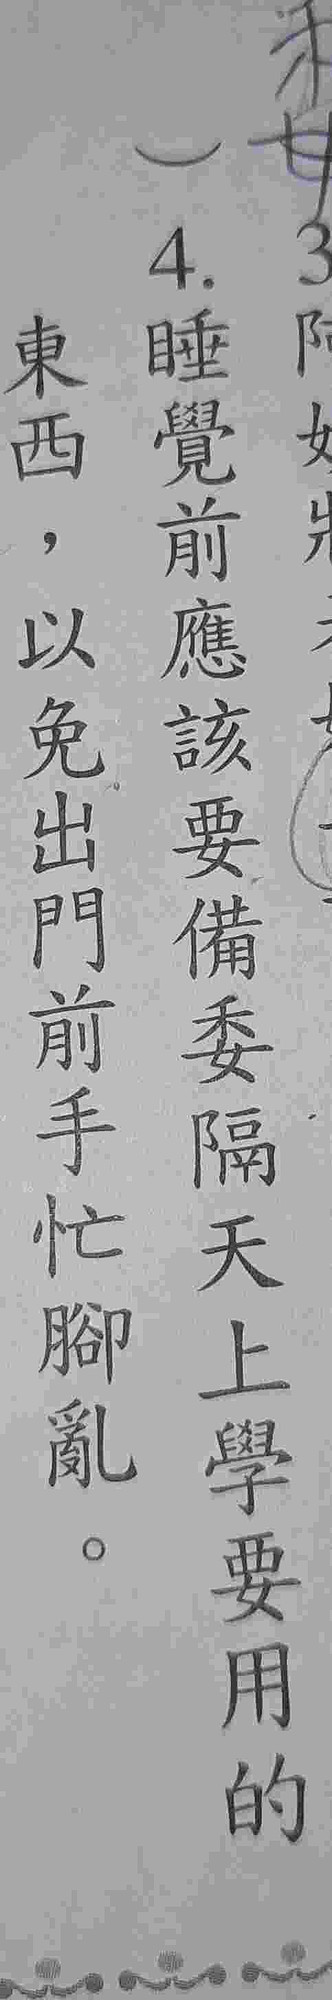 ）4.睡覺前應該要備委隔天上學要用的
東西，以免出門前手忙腳亂。